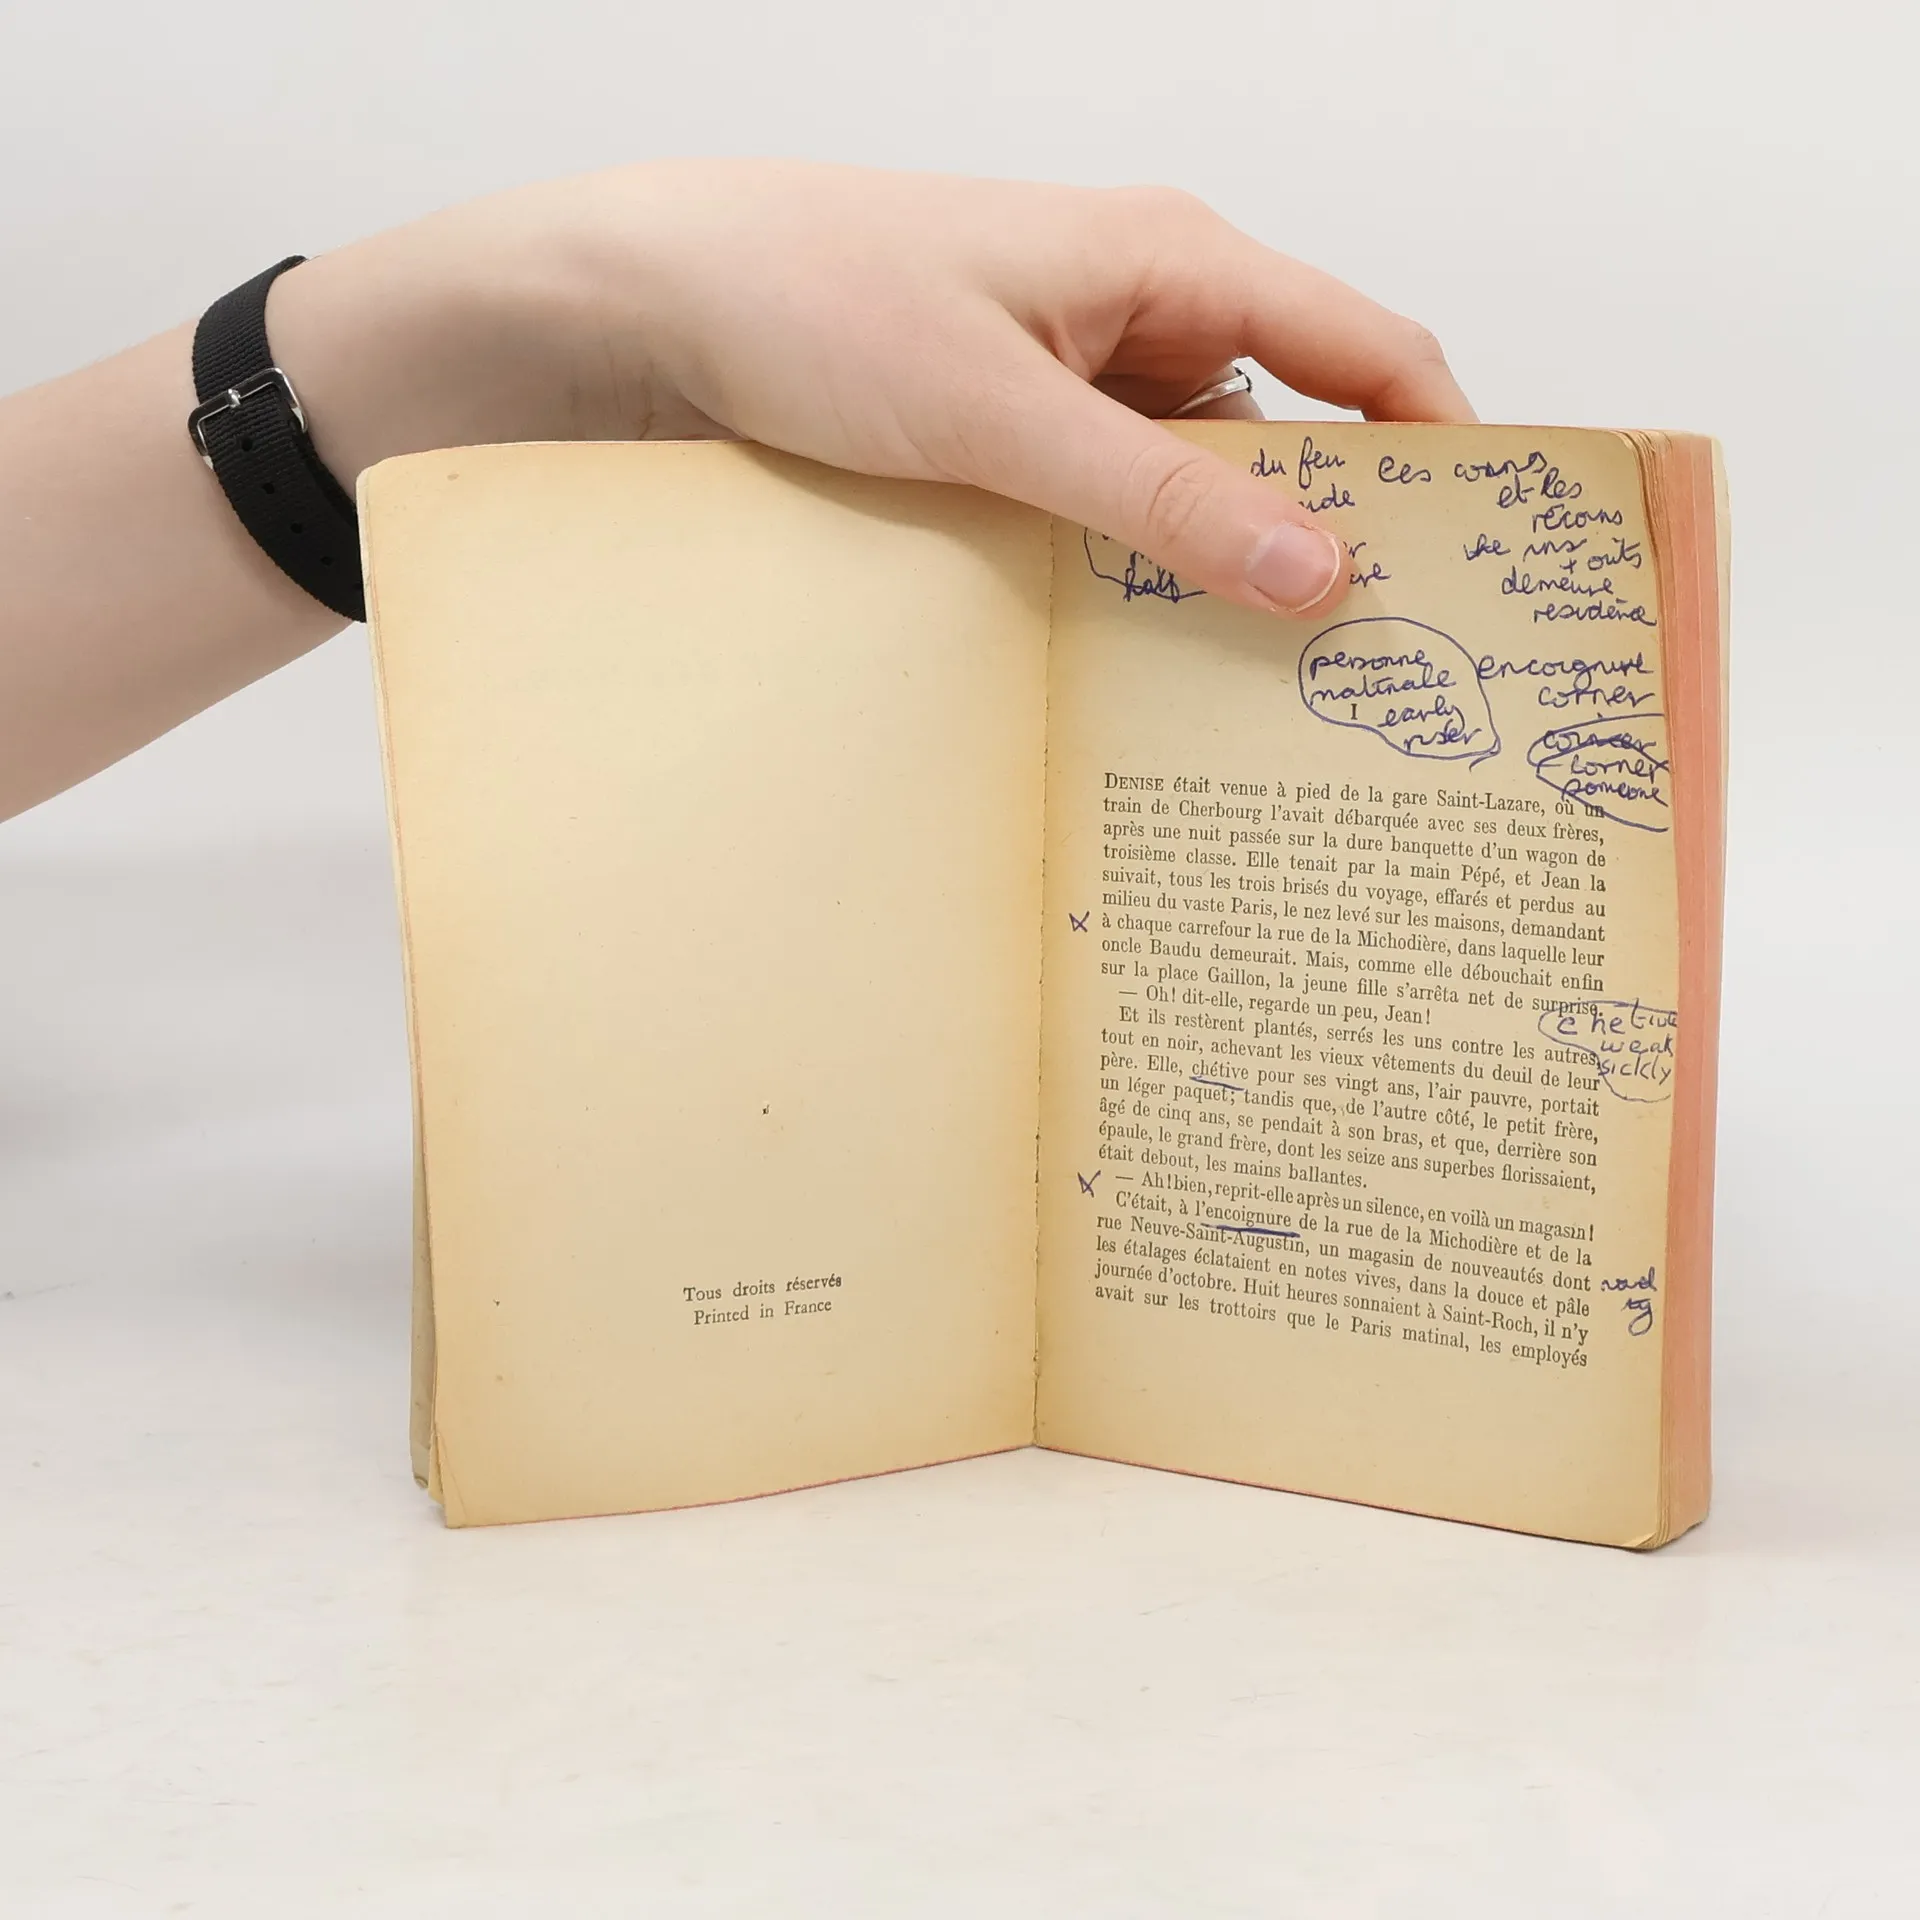 Tous droits réservés
Printed in France
du feu
les coins
et les
recoins
the ins
+ outs
demeure
residence
personne
matinale
early
riser
encoignure
corner
corner
someone
I
DENISE était venue à pied de la gare Saint-Lazare, où un
train de Cherbourg l'avait débarquée avec ses deux frères,
après une nuit passée sur la dure banquette d'un wagon de
troisième classe. Elle tenait par la main Pépé, et Jean la
suivait, tous les trois brisés du voyage, effarés et perdus au
milieu du vaste Paris, le nez levé sur les maisons, demandant
à chaque carrefour la rue de la Michodière, dans laquelle leur
oncle Baudu demeurait. Mais, comme elle débouchait enfin
sur la place Gaillon, la jeune fille s'arrêta net de surprise.
— Oh! dit-elle, regarde un peu, Jean!
Et ils restèrent plantés, serrés les uns contre les autres,
tout en noir, achevant les vieux vêtements du deuil de leur
père. Elle, chétive pour ses vingt ans, l'air pauvre, portait
un léger paquet; tandis que, de l'autre côté, le petit frère,
âgé de cinq ans, se pendait à son bras, et que, derrière son
épaule, le grand frère, dont les seize ans superbes florissaient,
était debout, les mains ballantes.
— Ah! bien, reprit-elle après un silence, en voilà un magasin!
C'était, à l'encoignure de la rue de la Michodière et de la
rue Neuve-Saint-Augustin, un magasin de nouveautés dont
les étalages éclataient en notes vives, dans la douce et pâle
journée d'octobre. Huit heures sonnaient à Saint-Roch, il n'y
avait sur les trottoirs que le Paris matinal, les employés
chetive
weak
sickly